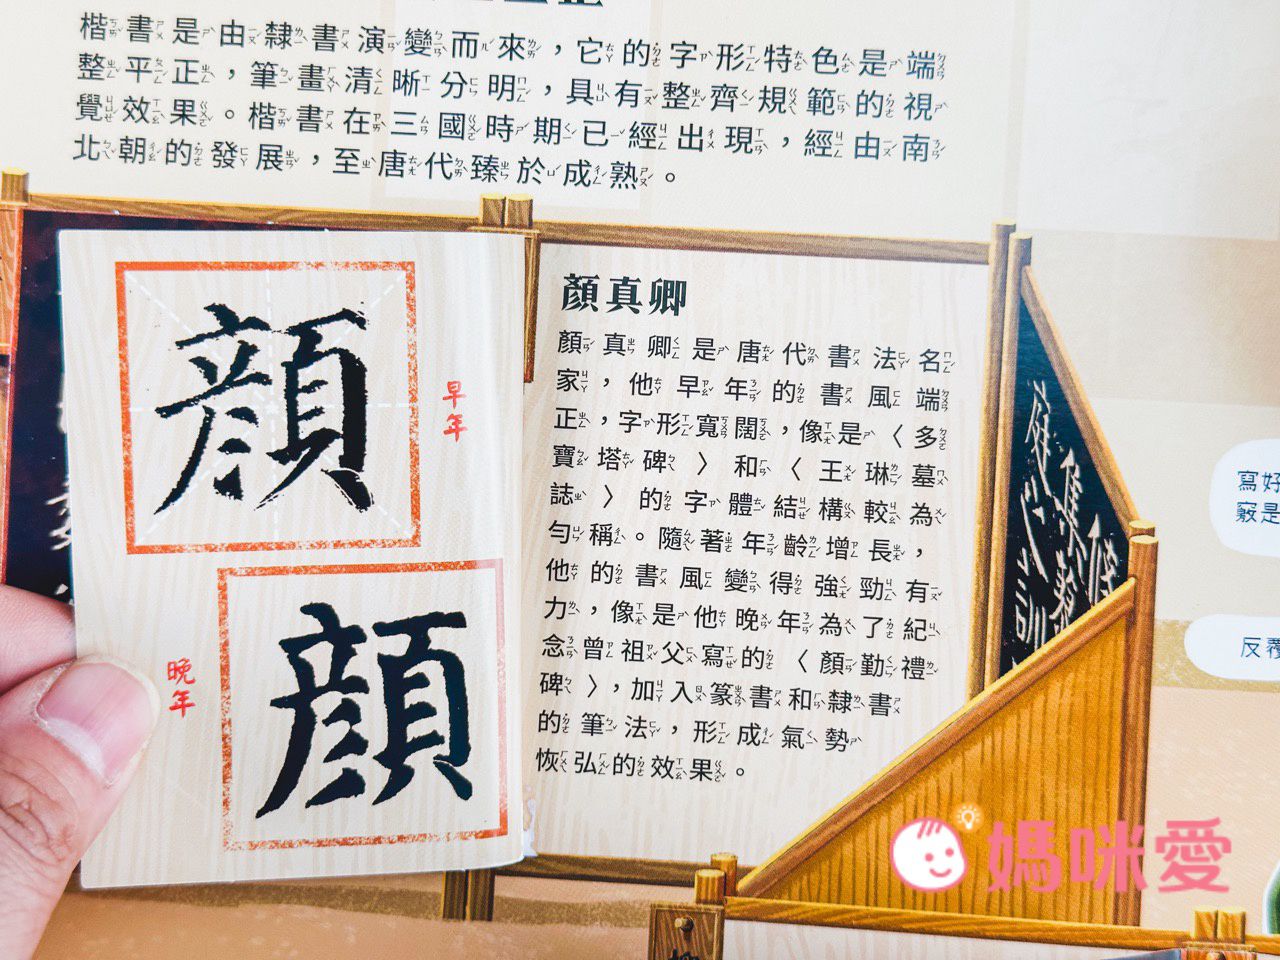 楷書是由隸書演變而來，它的字形特色是端
整平正，筆畫清晰分明，具有整齊規範的視
覺效果。楷書在三國時期已經出現，經由南
北朝的發展，至唐代臻於成熟。
顏
早年
顏
晚年
顏真卿
顏真卿是唐代書法名
家，他早年的書風端
正，字形寬闊，像是〈多
寶塔碑〉和〈王琳墓
誌〉的字體結構較為
勻稱。隨著年齡增長，
他的書風變得強勁有
力，像是他晚年為了紀
念曾祖父寫的〈顏勤禮
碑〉，加入篆書和隸書
的筆法，形成氣勢
恢弘的效果。
寫好
竅是
反覆
媽咪愛